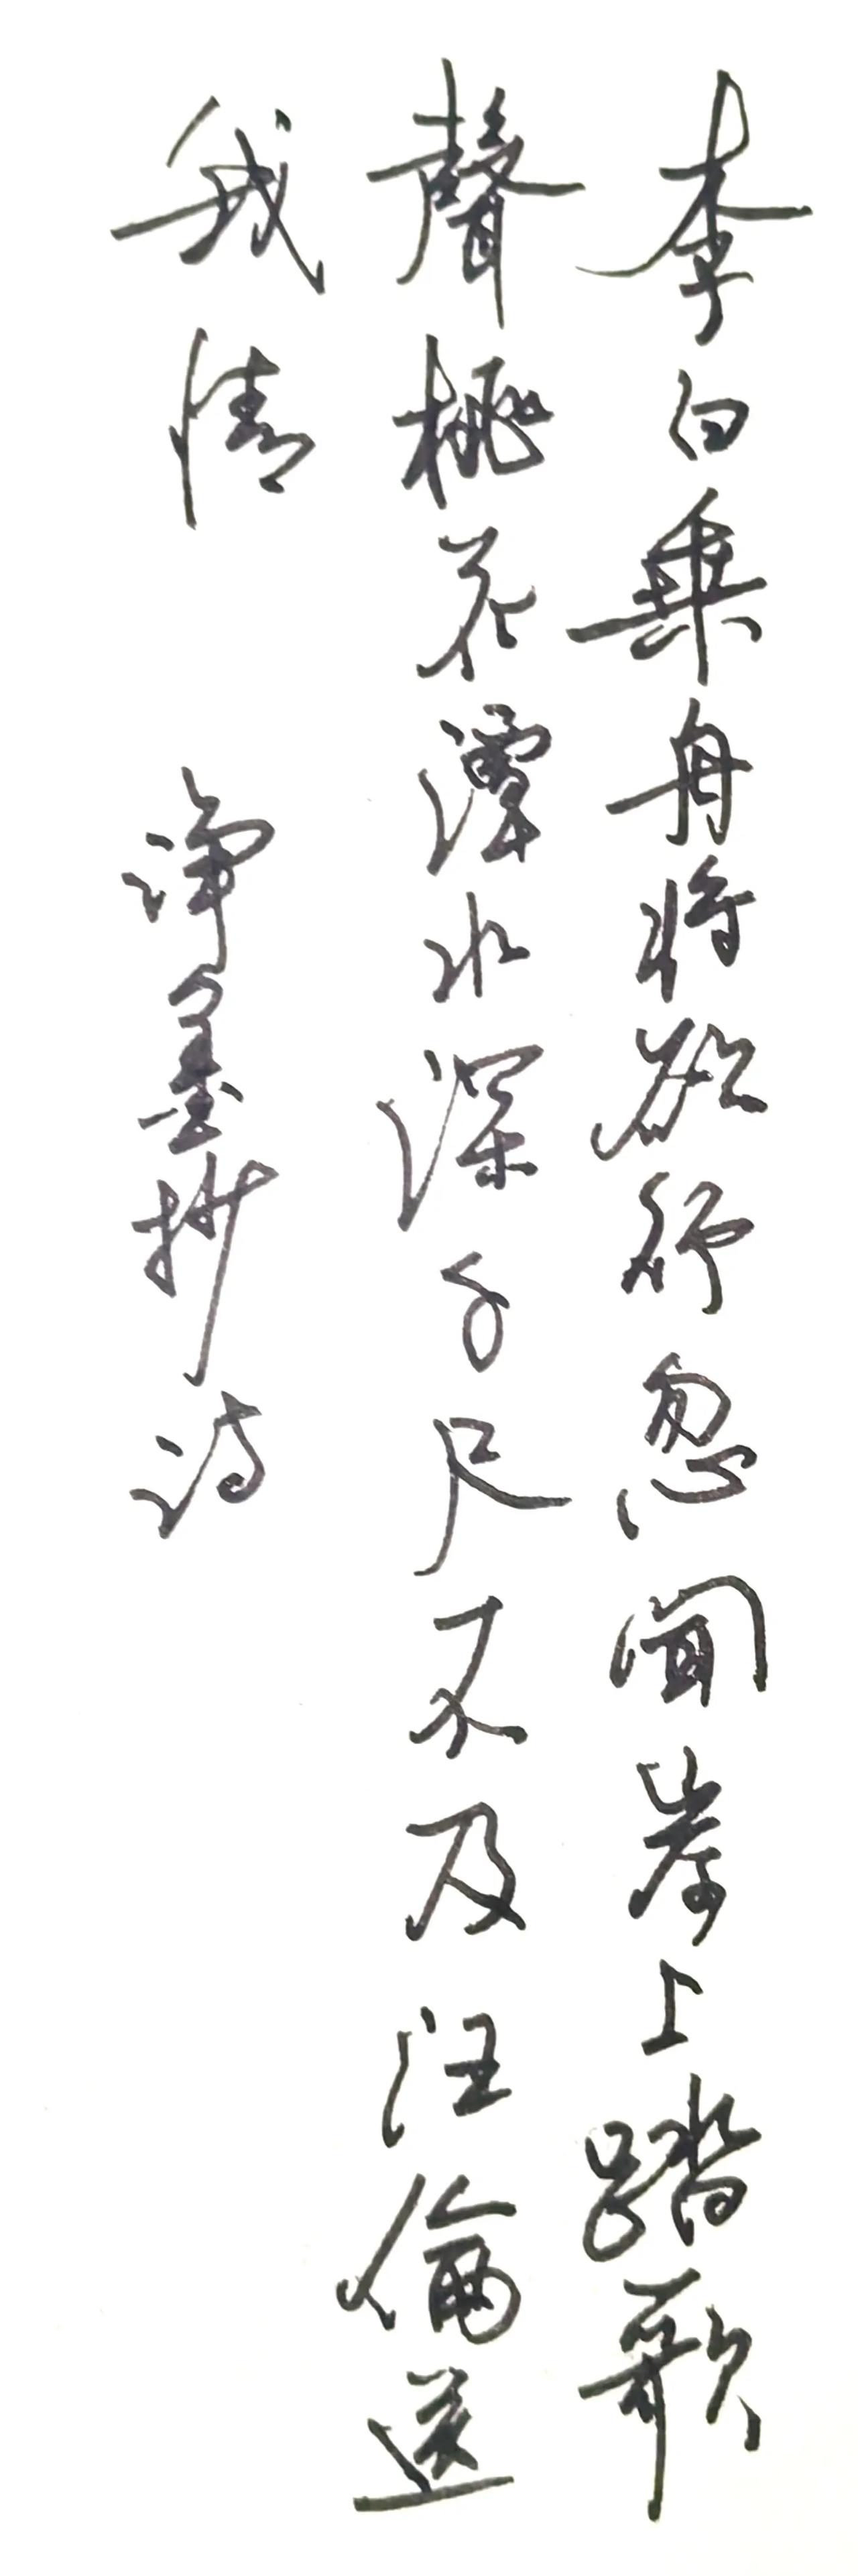 李白乘舟将欲行忽闻岸上踏歌
聲桃花潭水深千尺不及汪倫送
我情
诤墨抄诗